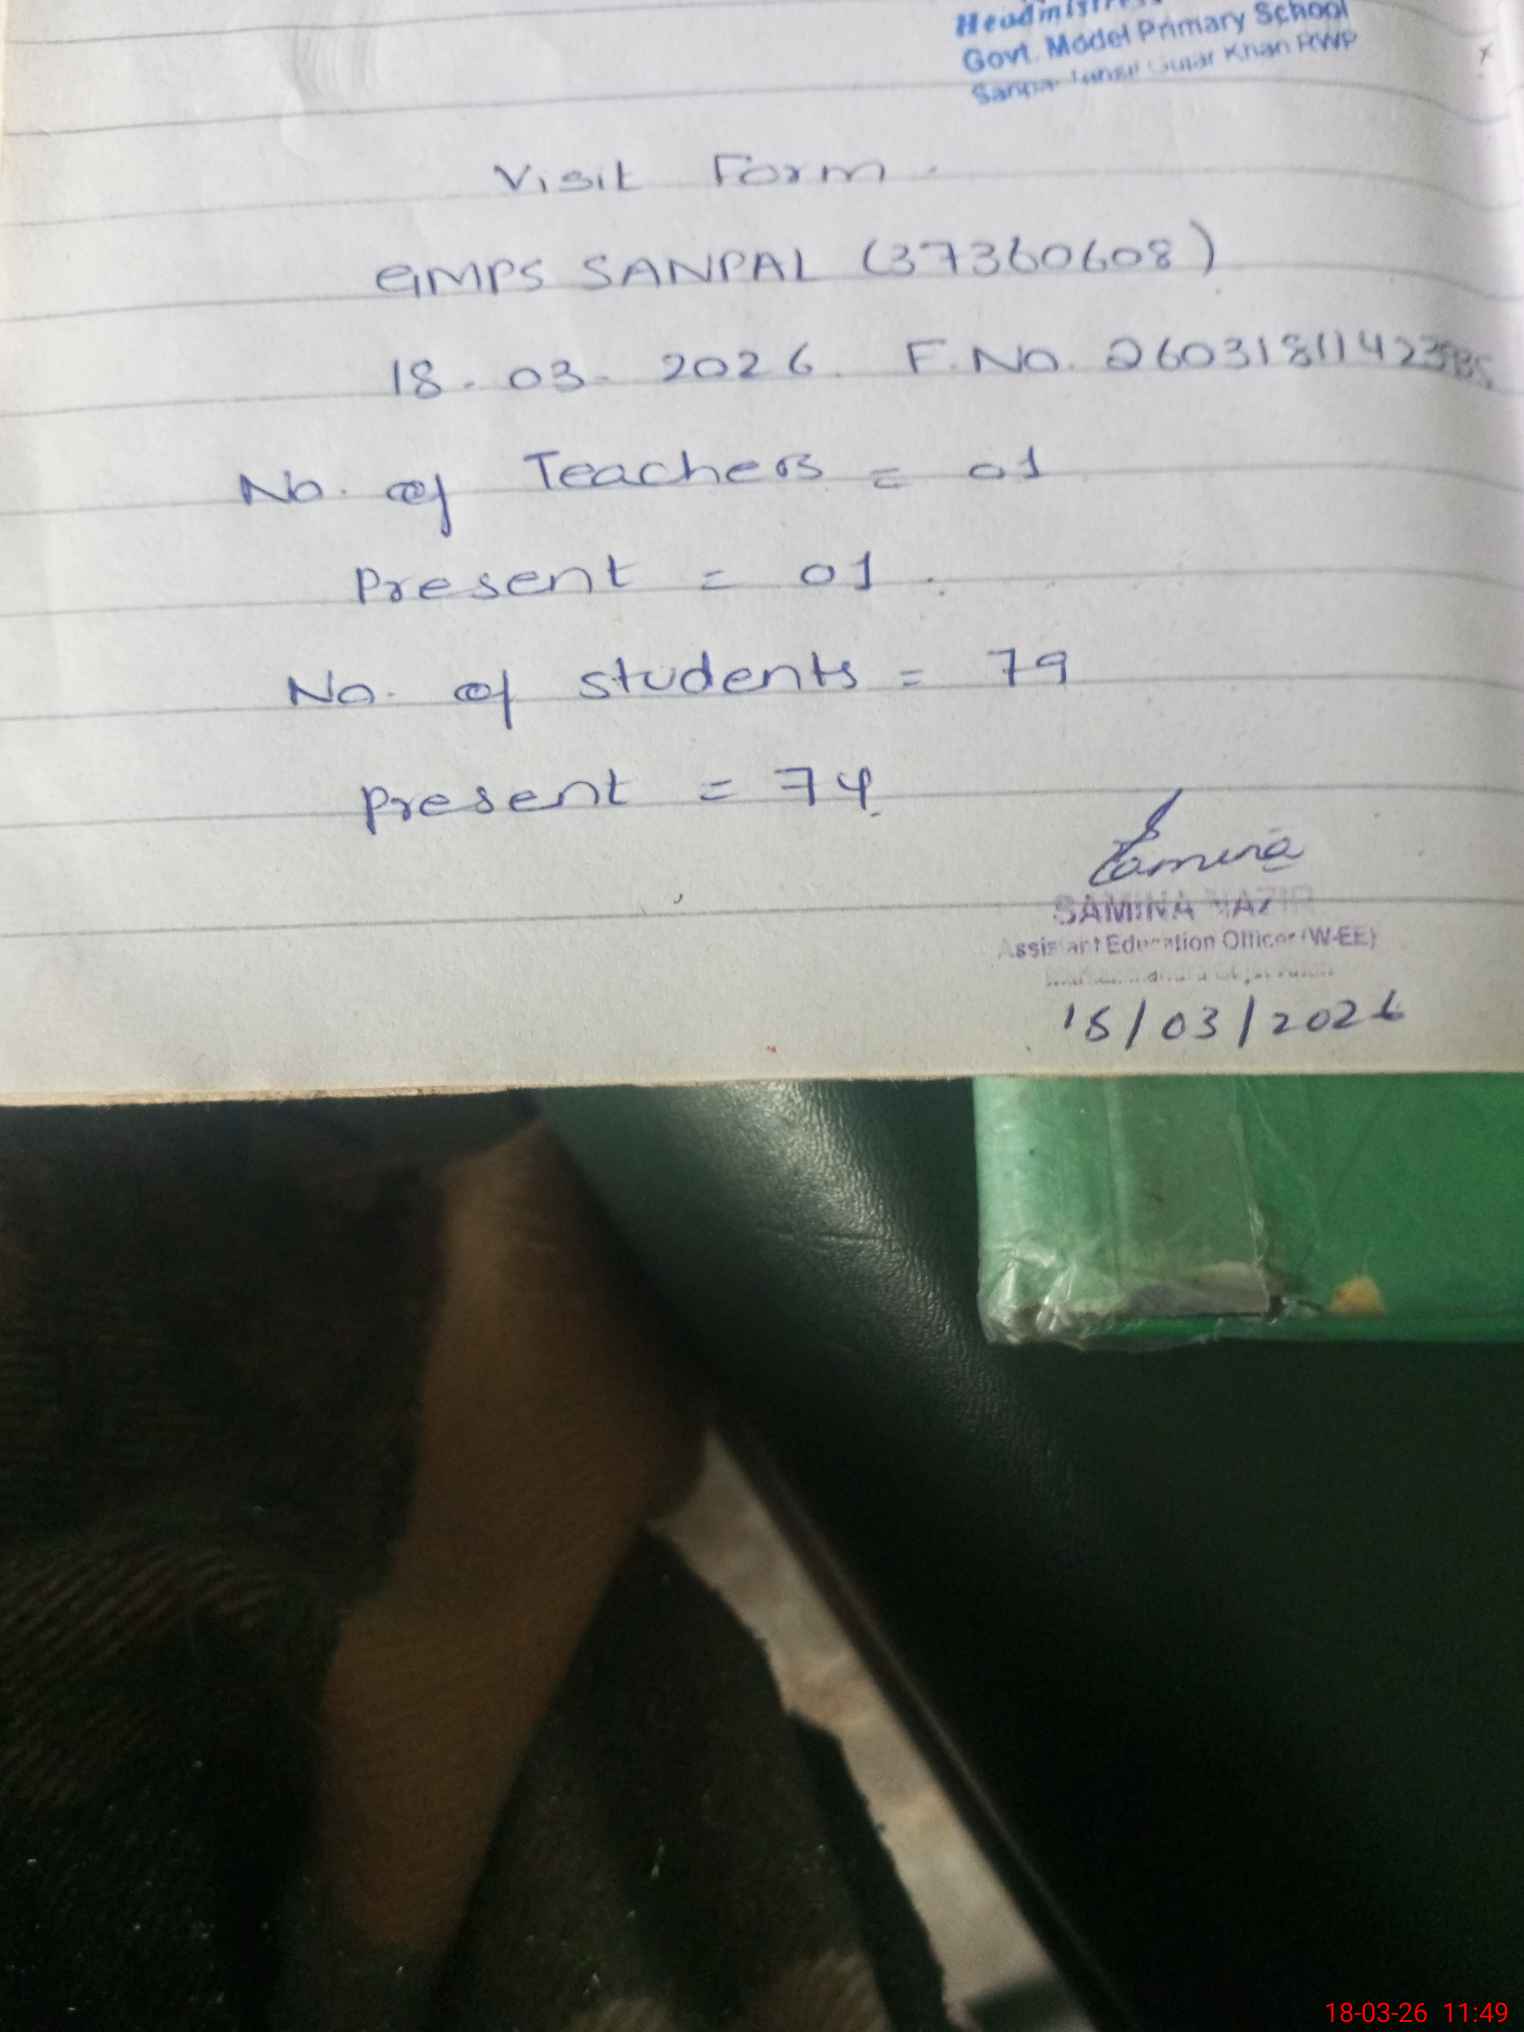 Headmistress
Govt. Model Primary School
Gujar Khan RWP
Visit Form
GMPS SANPAL (37360608)
18-03-2026. F.No.
No. of Teachers = 01
Present = 01.
No. of students = 79
Present = 74.
Samina
SAMINA NAZIR
Assistant Education Officer (W-EE)
18/03/2026
18-03-26 11:49